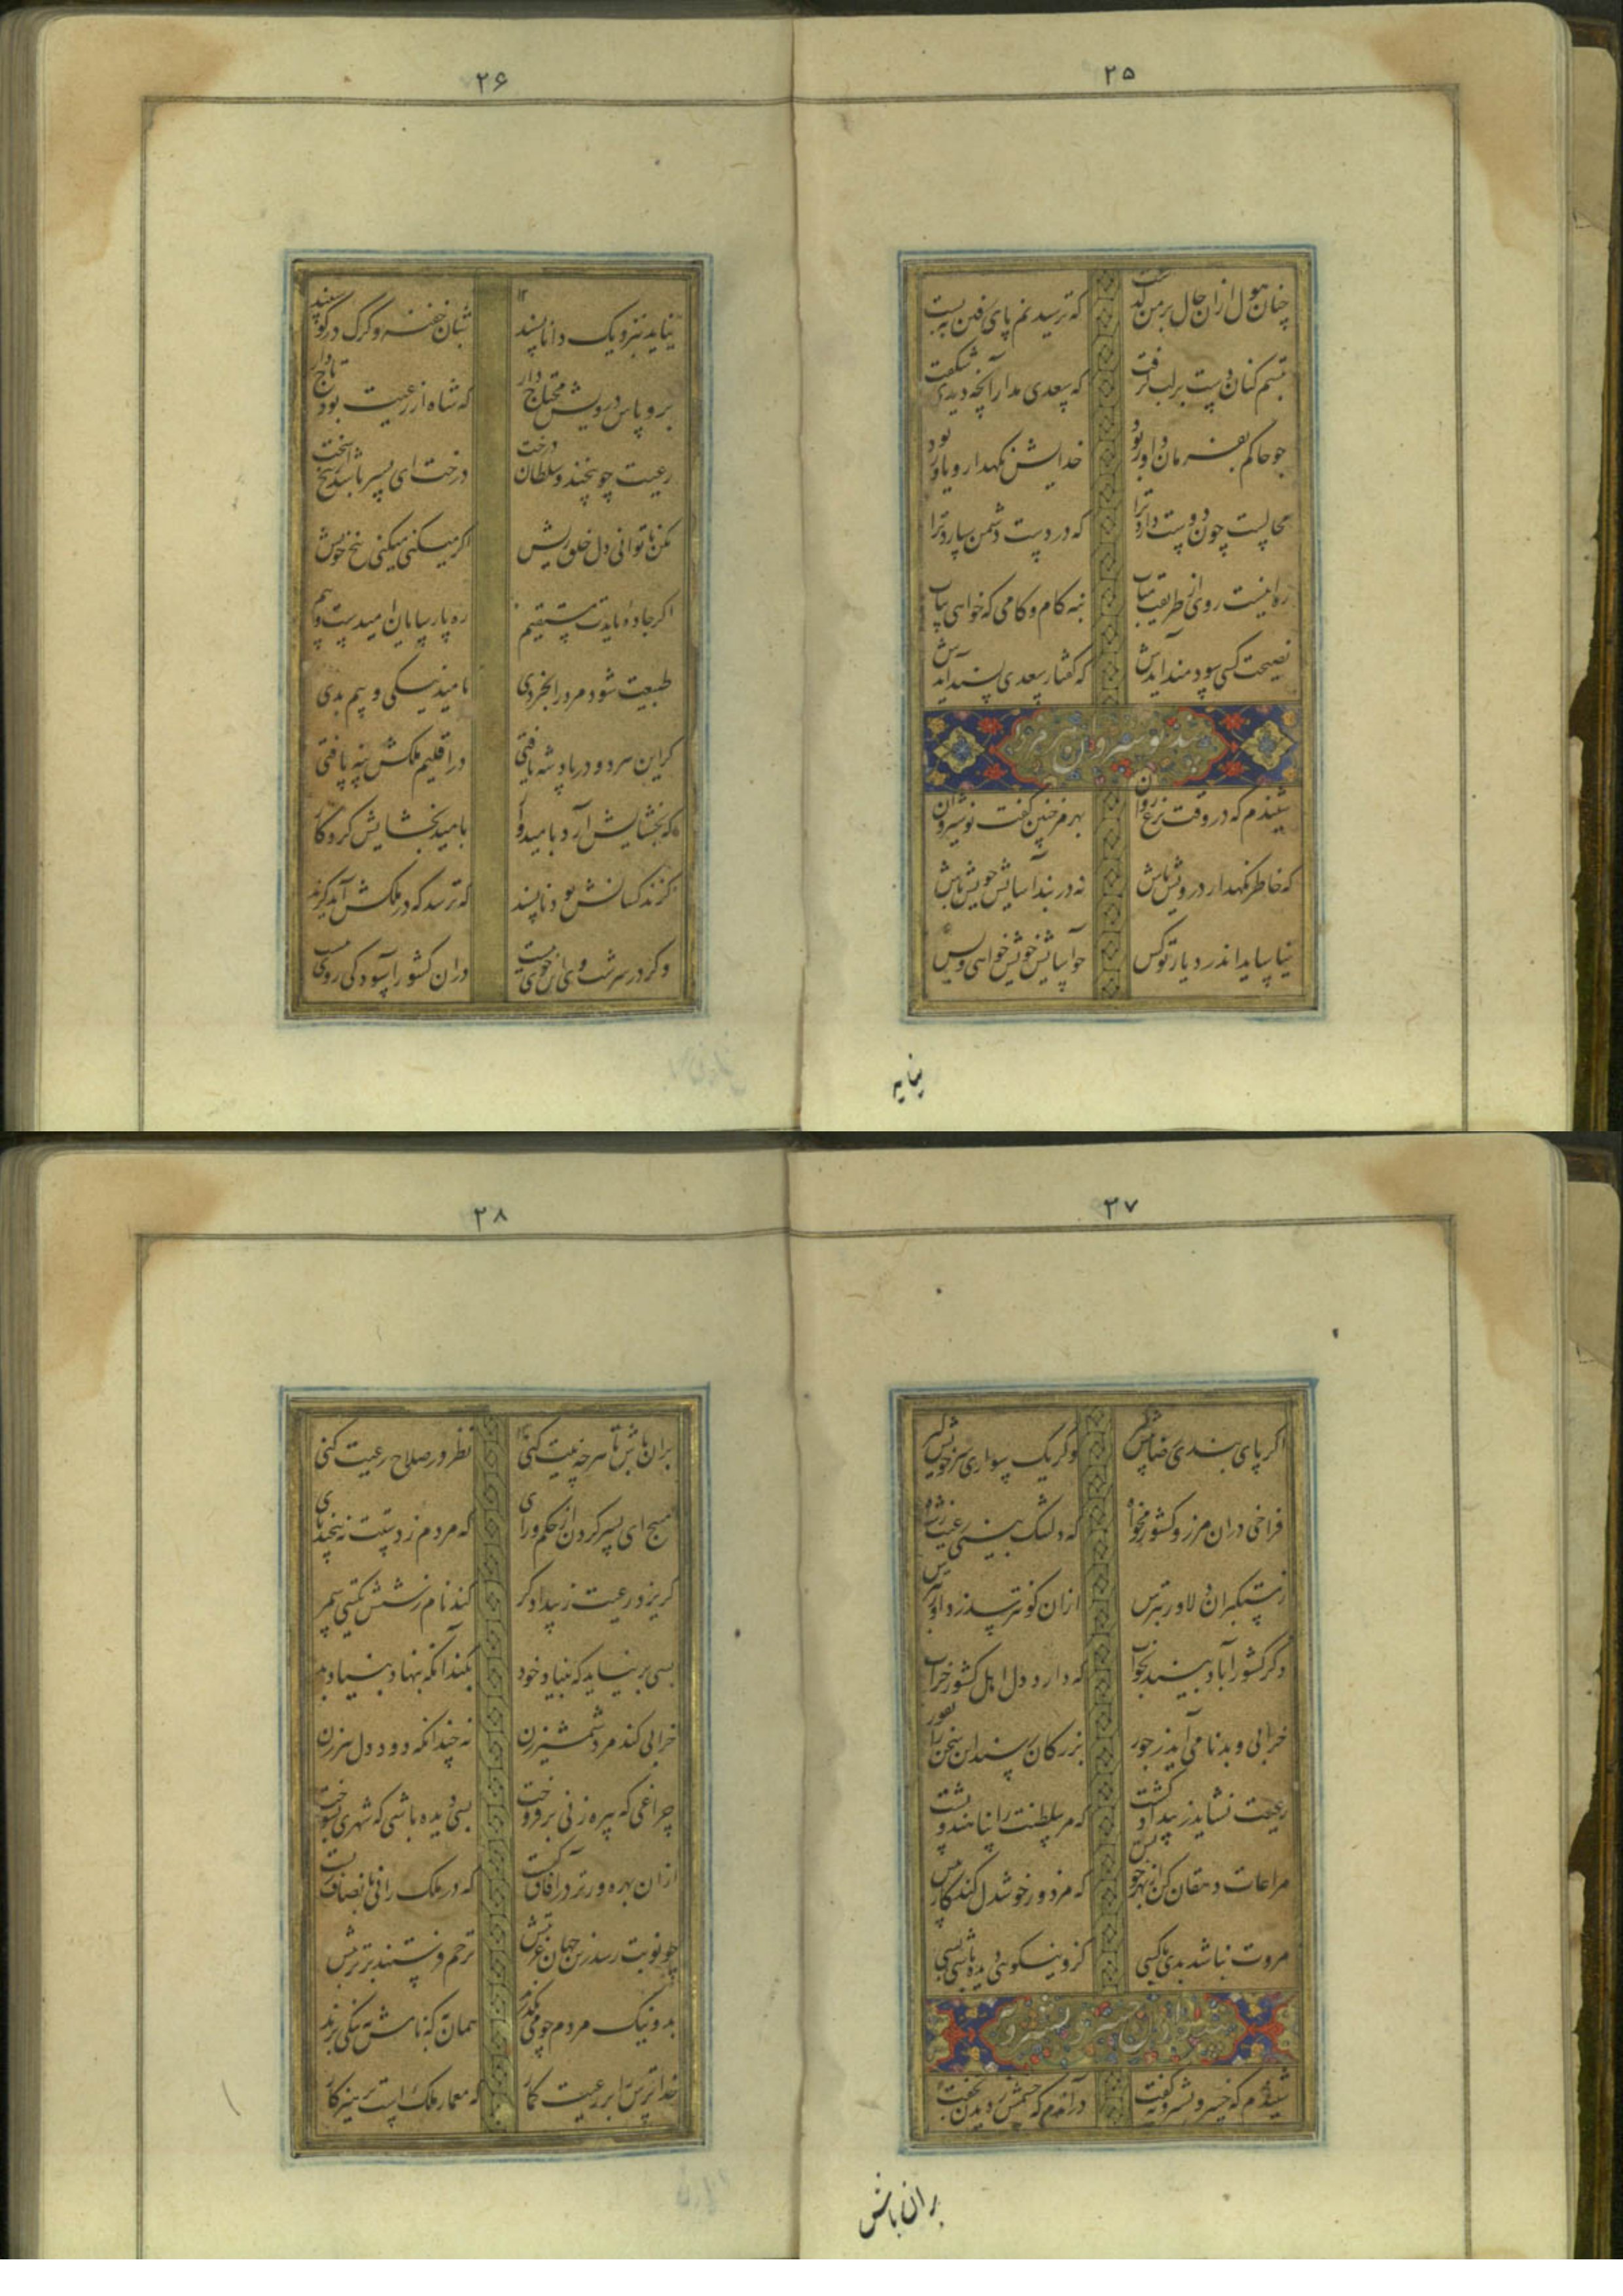 ۲۵
چنان هول ازان حال بر من گذشت
که ترسیدنم پای رفتن ببست
تبسم کنان دست بر لب گرفت
که سعدی مدار آنچه دیدی شگفت
چو حاکم بفرمان داور بود
خدایش نگهدار و یاور بود
محالست چون دوست دارد ترا
که در دست دشمن سپارد ترا
ره اینست روی از طریقت متاب
بنه کام و کامی که خواهی بیاب
نصیحت کسی سودمند آیدش
که گفتار سعدی پسند آیدش
پند نوشیروان هرمز را
شنیدم که در وقت نزع روان
بهرمز چنین گفت نوشیروان
که خاطر نگهدار درویش باش
نه در بند آسایش خویش باش
نیاساید اندر دیار تو کس
چو آسایش خویش خواهی و بس
نیاید
۲۶
نیاید بنزدیک دانا پسند
شبان خفته و گرگ در گوسفند
برو پاس درویش محتاج دار
که شاه از رعیت بود تاج دار
رعیت چو بیخند و سلطان درخت
درخت ای پسر باشد از بیخ سخت
مکن تا توانی دل خلق ریش
اگر میکنی میکنی بیخ خویش
اگر جاده بایدت مستقیم
ره پارسایان امیدست و بیم
طبیعت شود مرد را بخردی
بامید نیکی و بیم بدی
گر این هر دو در پادشه یافتی
در اقلیم ملکش پنه یافتی
که بخشایش آرد بامیدوار
بامید بخشایش کردگار
گزند کسانش بود ناپسند
که ترسد که در ملکش آید گزند
وگر در سرشت وی این خوی نیست
دران کشور آسودگی روی نیست
۲۷
اگر پای بندی رضا پیش گیر
وگر یک سواری سر خویش گیر
فراخی دران مرز و کشور مخواه
که دلتنگ بینی رعیت ز شاه
ز مستکبران دلاور بترس
ازان کو نترسد ز داور بترس
دگر کشور آباد بیند بخواب
که دارد دل اهل کشور خراب
خرابی و بدنامی آید ز جور
بزرگان رسند این سخن را بغور
رعیت نشاید ز بیداد کشت
که مر سلطنت را پناهند و پشت
مراعات دهقان کن از بهر خویش
که مزدور خوشدل کند کار بیش
مروت نباشد بدی با کسی
کزو نیکوئی دیده باشی بسی
شنیدم که خسرو بشیرویه گفت
دران دم که چشمش ز دیدن بخفت
بران باش
۲۸
بران باش تا هرچه نیت کنی
نظر در صلاح رعیت کنی
مپیچ ای پسر گردن از حکم و رای
که مردم ز دستت نپیچند پای
گریزد رعیت ز بیدادگر
کند نام زشتش بگیتی سمر
بسی بر نیاید که بنیاد خود
بکند آنکه بنهاد بنیاد بد
خرابی کند مرد شمشیرزن
نه چندانکه دود دل پیرزن
چراغی که بیوه زنی برفروخت
بسی دیده باشی که شهری بسوخت
ازان بهره ورتر در آفاق کیست
که در ملک رانی بانصاف زیست
چو نوبت رسد زین جهان غربتش
ترحم فرستند بر تربتش
بد و نیک مردم چو می بگذرند
همان به که نامش به نیکی برند
خدا ترس را بر رعیت گمار
که معمار ملک است پرهیزکار